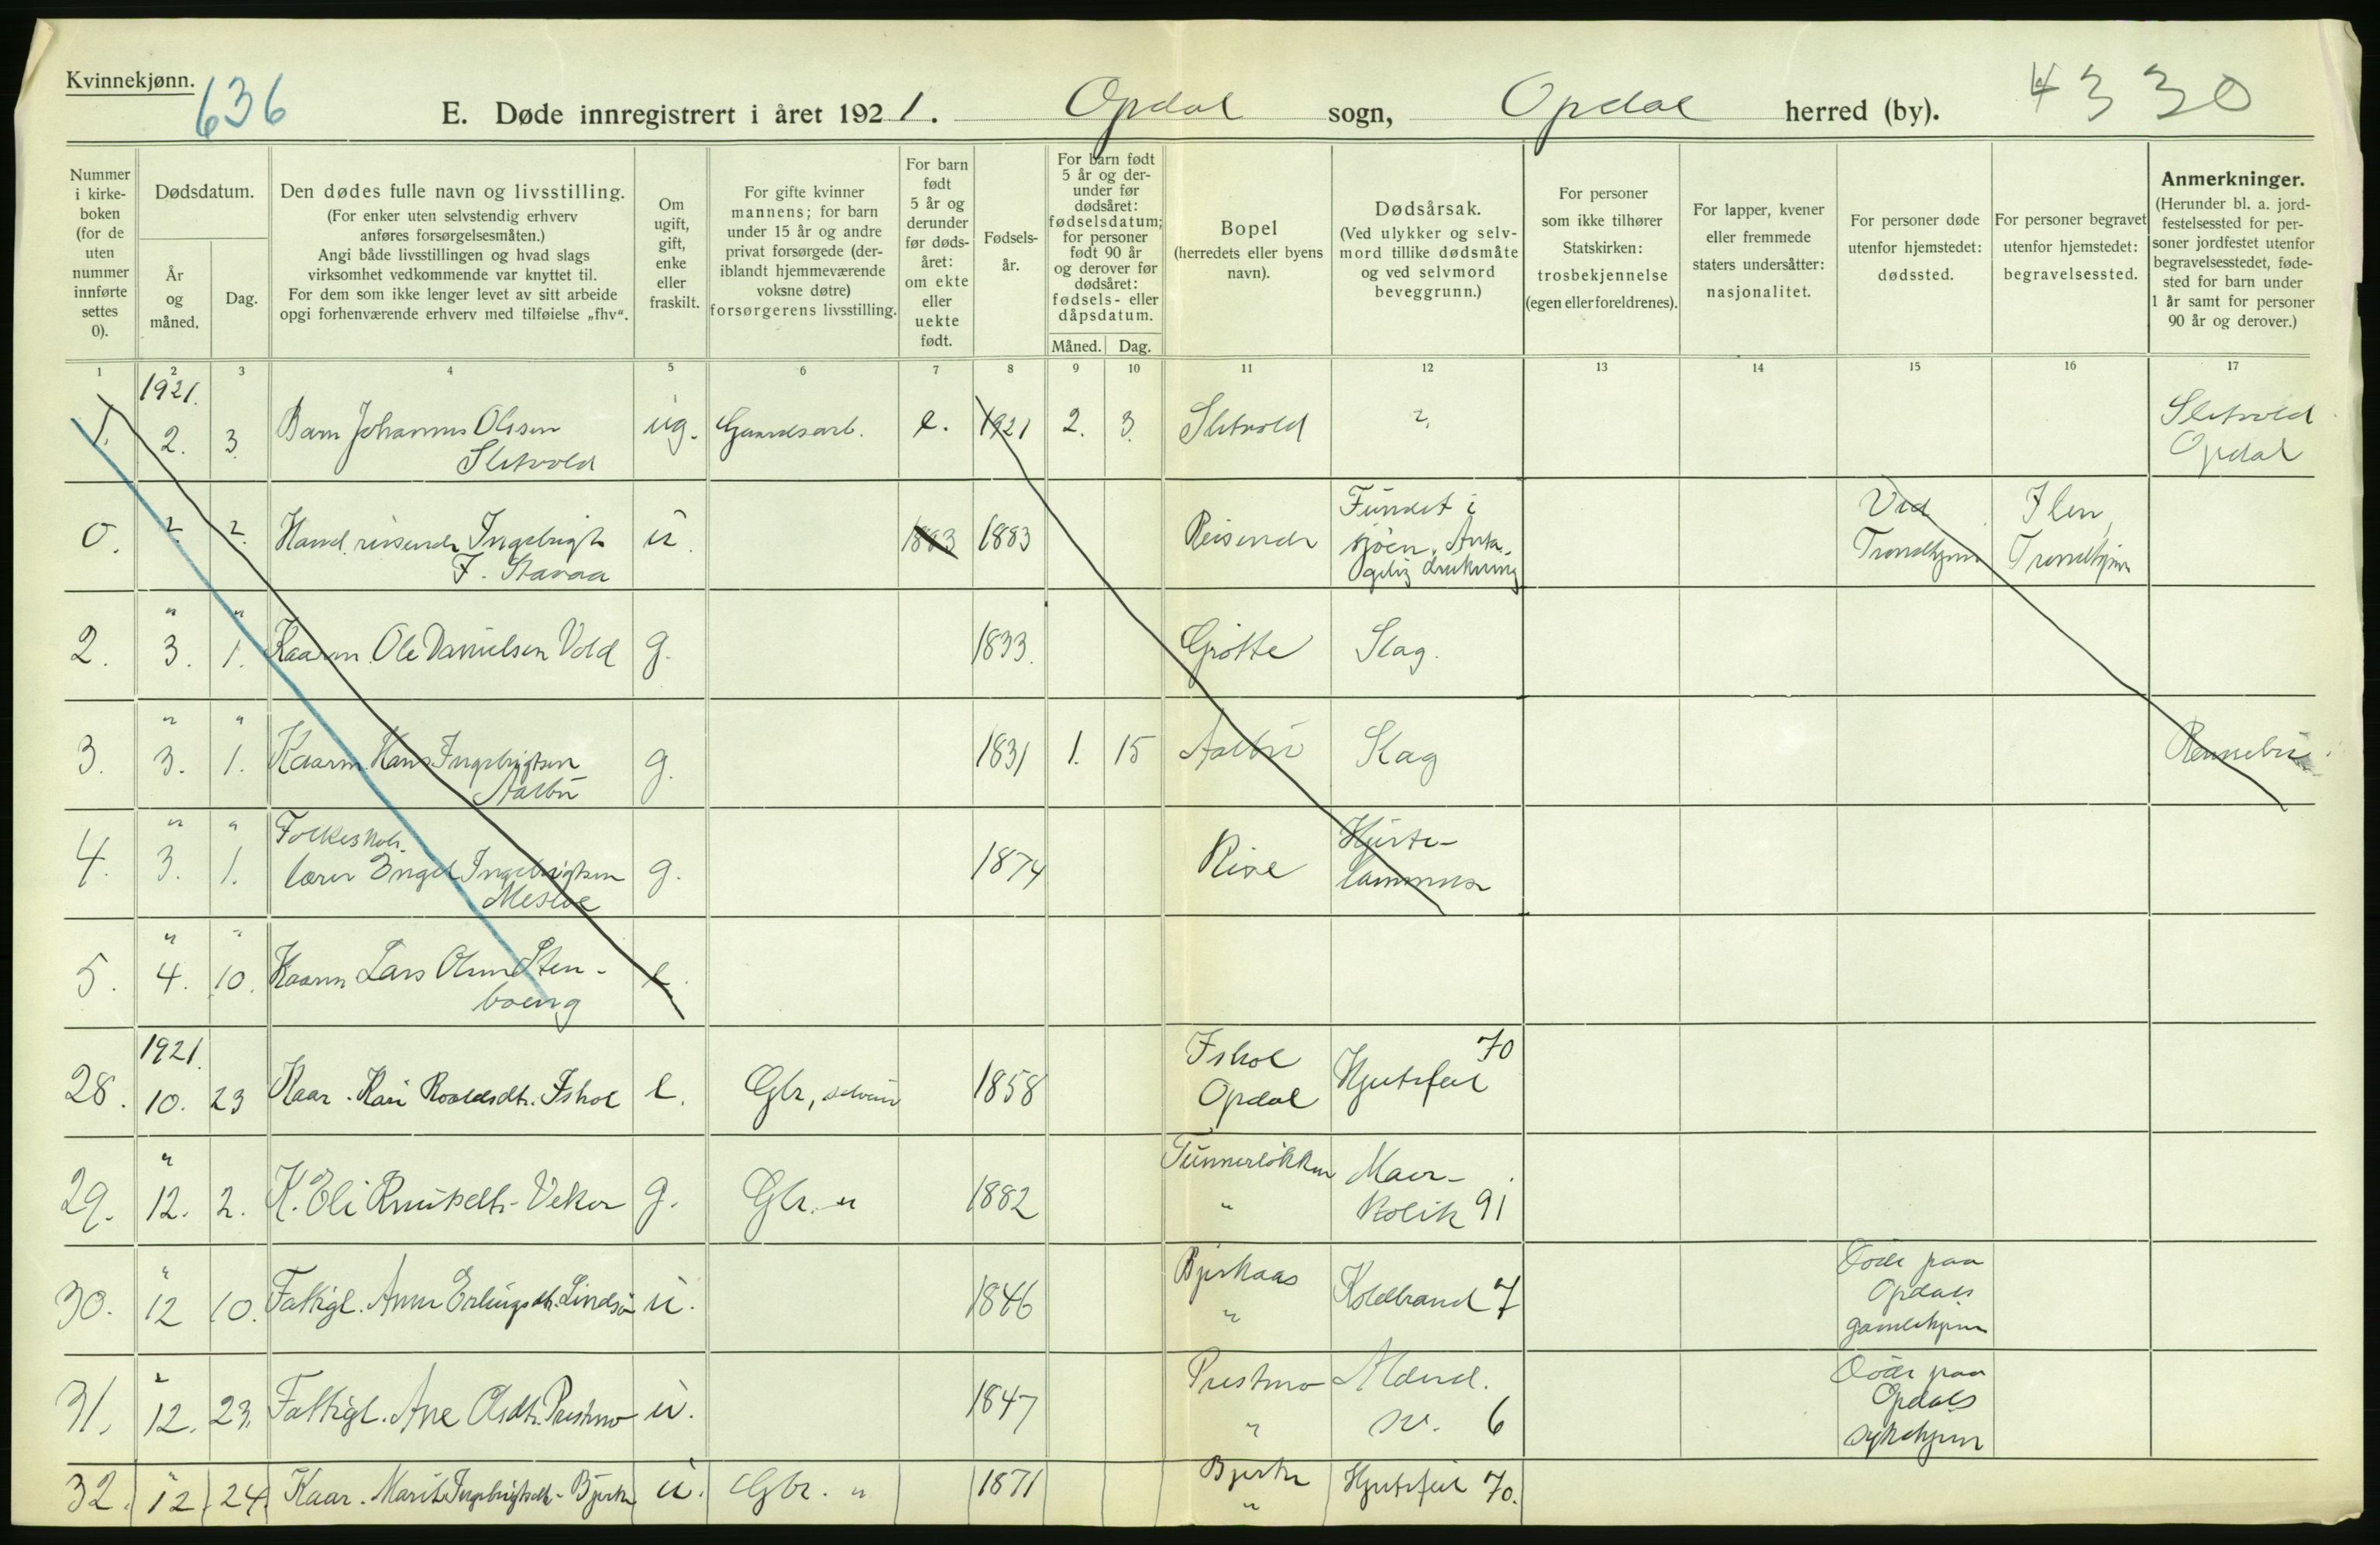 Kvinnekjønn.
636
E. Døde innregistrert i året 1921. Opdal sogn, Opdal herred (by).
4330
Nummer i kirke-boken (for de uten nummer innførte settes 0).
Dødsdatum.
År og måned.
Dag.
Den dødes fulle navn og livsstilling.
(For enker uten selvstendig erhverv
anføres forsørgelsesmåten.)
Angi både livsstillingen og hvad slags
virksomhet vedkommende var knyttet til.
For dem som ikke lenger levet av sitt arbeide
opgi forhenværende erhverv med tilføielse „fhv“.
Om ugift, gift, enke eller fraskilt.
For gifte kvinner
mannens; for barn
under 15 år og andre
privat forsørgede (der-
iblandt hjemmeværende
voksne døtre)
forsørgerens livsstilling.
For barn
født
5 år og
derunder
før døds-
året:
om ekte
eller
uekte
født.
Fødsels-
år.
For barn født
5 år og der-
under før
dødsåret:
fødselsdatum;
for personer
født 90 år
og derover før
dødsåret:
fødsels- eller
dåpsdatum.
Måned. Dag.
Bopel
(herredets eller byens
navn).
Dødsårsak.
(Ved ulykker og selv-
mord tillike dødsmåte
og ved selvmord
beveggrunn.)
For personer
som ikke tilhører
Statskirken:
trosbekjennelse
(egen eller foreldrenes).
For lapper, kvener
eller fremmede
staters undersåtter:
nasjonalitet.
For personer døde
utenfor hjemstedet:
dødssted.
For personer begravet
utenfor hjemstedet:
begravelsessted.
Anmerkninger.
(Herunder bl. a. jord-
festelsessted for per-
soner jordfestet utenfor
begravelsesstedet, føde-
sted for barn under
1 år samt for personer
90 år og derover.)
1 2 3 4 5 6 7 8 9 10 11 12 13 14 15 16 17
1921.
1. 2. 3. Barn Johannes Olsen ug. Gaardsarb. e. 1921 2. 3. Sletvold ? Sletvold
Sletvold Opdal
0. ? ?. Hand. reisende Ingebrigt u. 1883 1883 Reisende Fundet i Ved Ilen,
F. Stavaa sjöen. Anta- Trondhjem Trondhjem
gelig drukning
2. " 3. " 1. Kaarm. Ole Danielsen Vold g. 1833. Grötte Slag.
3. " 3. " 1. Kaarm. Hans Ingebrigtsen g. 1831 1. 15 Aalbu Slag Rennebu.
Aalbu
4. " 3. " 1. Folkeskole- g. 1874 Rise Hjerte-
lærer Engel Ingebrigtsen lammelse
Mesloe
5. " 4. " 10. Kaarm Lars Olsen Sten- e.
boeng
1921.
28. 10. 23 Kaar. Kari Roaldsdtr. Ishol e. Gbr, selveier 1858 Ishol Hjertefeil 70
Opdal
29. " 12. 2. K. Eli Knutsdtr. Veker g. Gbr. " 1882 Tunnerlökken Mave-
" kolik 91
30. " 12 10. Fattigl. Anne Erlingsdtr. Lindsö u. 1846 Bjerkaas Koldbrand 7 Döde paa
" Opdals
gamlehjem
31. " 12. 23. Fattigl. Ane Olsdtr. Prestmo u. 1847 Prestmo Alderd. Döde paa
" sv. 6 Opdals
sykehjem
32. " 12 24. Kaar. Marit Ingebrigtsdtr. Bjerke u. Gbr. " 1871 Bjerke Hjertefeil 70.
"